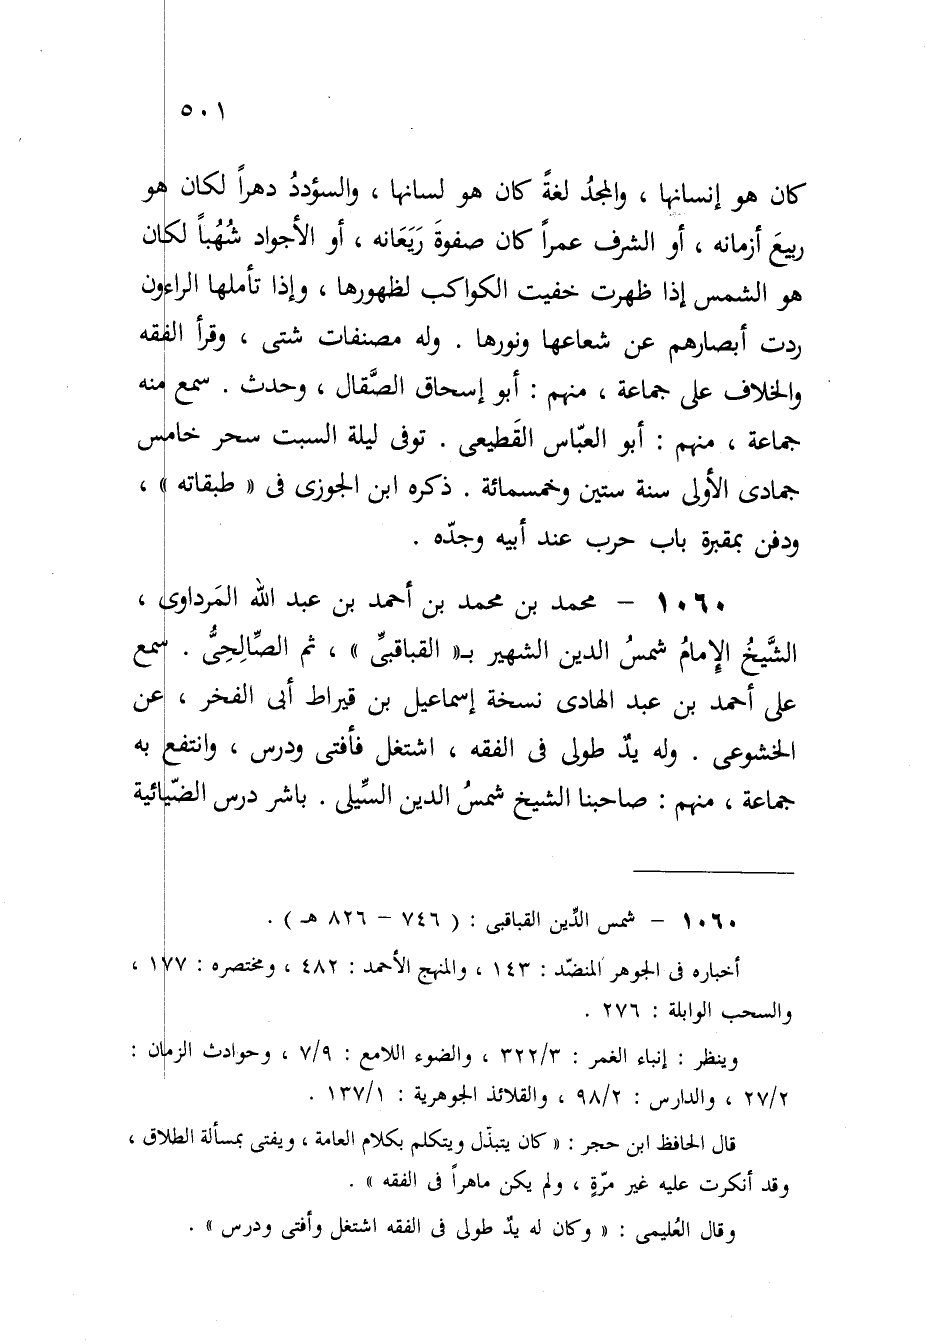 ٥٠١
كان هو إنسانها ، والمجدُ لغةً كان هو لسانها ، والسؤددُ دهراً لكان هو
ربيعَ أزمانه ، أو الشرف عمراً كان صفوةَ رَيَعَانه ، أو الأجواد شُهُباً لكان
هو الشمس إذا ظهرت خفيت الكواكب لظهورها ، وإذا تأملها الراءون
ردت أبصارهم عن شعاعها ونورها . وله مصنفات شتى ، وقرأ الفقه
والخلاف على جماعة ، منهم : أبو إسحاق الصَّقال ، وحدث . سمع منه
جماعة ، منهم : أبو العبّاس القَطيعى . توفى ليلة السبت سحر خامس
جمادى الأولى سنة ستين وخمسمائة . ذكره ابن الجوزى فى « طبقاته » ،
ودفن بمقبرة باب حرب عند أبيه وجدّه .
١٠٦٠ – محمد بن محمد بن أحمد بن عبد الله المَرداوى ،
الشَّيخُ الإِمامُ شمسُ الدين الشهير بـ« القباقبىِّ » ، ثم الصِّالِحِىُّ . سمع
على أحمد بن عبد الهادى نسخة إسماعيل بن قيراط أبى الفخر ، عن
الخشوعى . وله يدٌ طولى فى الفقه ، اشتغل فأفتى ودرس ، وانتفع به
جماعة ، منهم : صاحبنا الشيخ شمسُ الدين السِّيلى . باشر درس الضّيائية
١٠٦٠ – شمس الدِّين القباقبى : ( ٧٤٦ – ٨٢٦ هـ ) .
أخباره فى الجوهر المنضّد : ١٤٣ ، والمنهج الأحمد : ٤٨٢ ، ومختصره : ١٧٧ ،
والسحب الوابلة : ٢٧٦ .
وينظر : إنباء الغمر : ٣٢٢/٣ ، والضوء اللامع : ٧/٩ ، وحوادث الزمان :
٢٧/٢ ، والدارس : ٩٨/٢ ، والقلائد الجوهرية : ١٣٧/١ .
قال الحافظ ابن حجر : « كان يتبذّل ويتكلم بكلام العامة ، ويفتى بمسألة الطلاق ،
وقد أنكرت عليه غير مرّةٍ ، ولم يكن ماهراً فى الفقه » .
وقال العُليمى : « وكان له يدٌ طولى فى الفقه اشتغل وأفتى ودرس » .